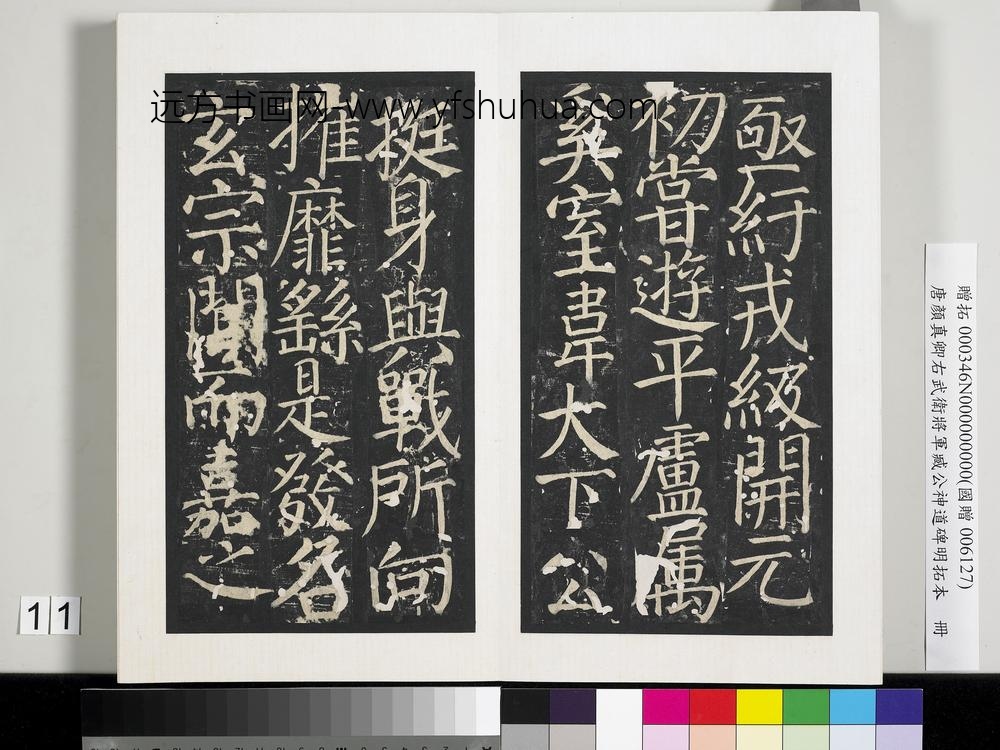 亟紆戎級開元
初甞遊平盧属
奚室韋大下公
挺身與戰所向
摧靡繇是發名
玄宗聞而嘉之
远方书画网-www.yfshuhua.com
贈拓 000346N000000000(國贈 006127)
唐顏真卿右武衛將軍臧公神道碑明拓本 冊
11